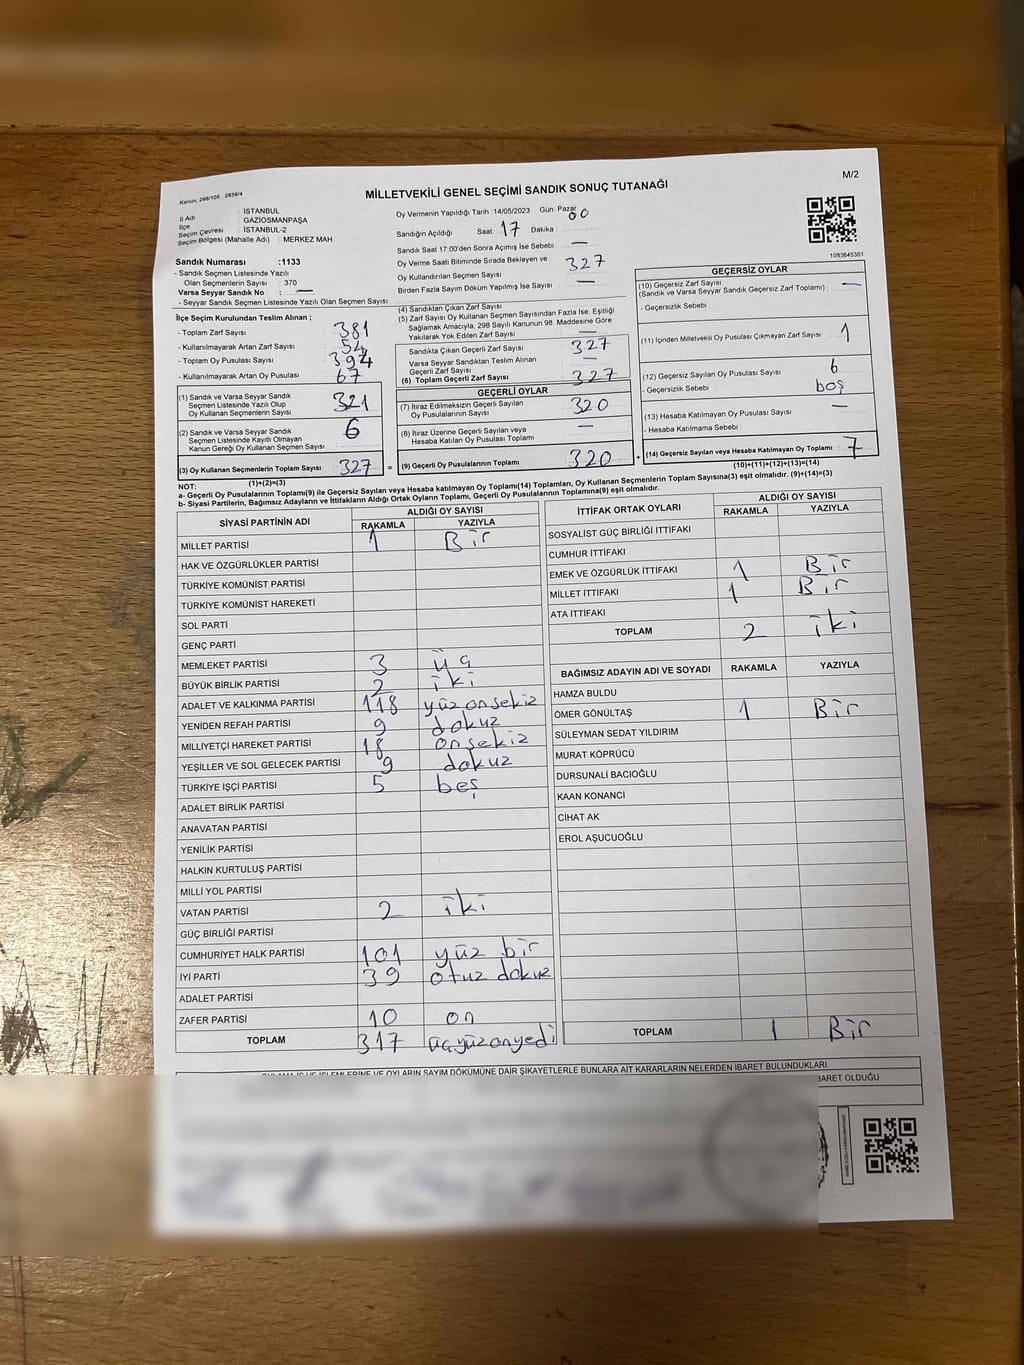 M/2
Kanun, 298/105 : 2839/4
MİLLETVEKİLİ GENEL SEÇİMİ SANDIK SONUÇ TUTANAĞI
İl Adı : İSTANBUL
İlçe : GAZİOSMANPAŞA
Seçim Çevresi : İSTANBUL-2
Seçim Bölgesi (Mahalle Adı) : MERKEZ MAH
Sandık Numarası :1133
- Sandık Seçmen Listesinde Yazılı
Olan Seçmenlerin Sayısı : 370
Varsa Seyyar Sandık No : —
- Seyyar Sandık Seçmen Listesinde Yazılı Olan Seçmen Sayısı
Oy Vermenin Yapıldığı Tarih :14/05/2023 Gün: Pazar
Sandığın Açıldığı Saat 17 Dakika 00
Sandık Saat 17:00'den Sonra Açımış İse Sebebi —
Oy Verme Saati Bitiminde Sırada Bekleyen ve
Oy Kullandırılan Seçmen Sayısı 327
Birden Fazla Sayım Döküm Yapılmış İse Sayısı —
1083645301
İlçe Seçim Kurulundan Teslim Alınan ;
- Toplam Zarf Sayısı 381
- Kullanılmayarak Artan Zarf Sayısı 54
- Toplam Oy Pusulası Sayısı 394
- Kullanılmayarak Artan Oy Pusulası 67
(1) Sandık ve Varsa Seyyar Sandık
Seçmen Listesinde Yazılı Olup
Oy Kullanan Seçmenlerin Sayısı 321
(2) Sandık ve Varsa Seyyar Sandık
Seçmen Listesinde Kayıtlı Olmayan
Kanun Gereği Oy Kullanan Seçmen Sayısı 6
(3) Oy Kullanan Seçmenlerin Toplam Sayısı 327 =
(1)+(2)=(3)
(4) Sandıktan Çıkan Zarf Sayısı
(5) Zarf Sayısı Oy Kullanan Seçmen Sayısından Fazla İse, Eşitliği
Sağlamak Amacıyla, 298 Sayılı Kanunun 98. Maddesine Göre
Yakılarak Yok Edilen Zarf Sayısı —
Sandıkta Çıkan Geçerli Zarf Sayısı 327
Varsa Seyyar Sandıktan Teslim Alınan
Geçerli Zarf Sayısı —
(6) Toplam Geçerli Zarf Sayısı 327
GEÇERLİ OYLAR
(7) İtiraz Edilmeksizin Geçerli Sayılan
Oy Pusulalarının Sayısı 320
(8) İtiraz Üzerine Geçerli Sayılan veya
Hesaba Katılan Oy Pusulası Toplamı —
(9) Geçerli Oy Pusulalarının Toplamı 320 +
GEÇERSİZ OYLAR
(10) Geçersiz Zarf Sayısı
(Sandık ve Varsa Seyyar Sandık Geçersiz Zarf Toplamı) : —
- Geçersizlik Sebebi :
(11) İçinden Milletvekili Oy Pusulası Çıkmayan Zarf Sayısı 1
(12) Geçersiz Sayılan Oy Pusulası Sayısı 6
- Geçersizlik Sebebi : boş
(13) Hesaba Katılmayan Oy Pusulası Sayısı —
- Hesaba Katılmama Sebebi
(14) Geçersiz Sayılan veya Hesaba Katılmayan Oy Toplamı 7
(10)+(11)+(12)+(13)=(14)
NOT:
a- Geçerli Oy Pusulalarının Toplamı(9) ile Geçersiz Sayılan veya Hesaba katılmayan Oy Toplamı(14) Toplamları, Oy Kullanan Seçmenlerin Toplam Sayısına(3) eşit olmalıdır. (9)+(14)=(3)
b- Siyasi Partilerin, Bağımsız Adayların ve İttifakların Aldığı Ortak Oyların Toplamı, Geçerli Oy Pusulalarının Toplamına(9) eşit olmalıdır.
SİYASİ PARTİNİN ADI ALDIĞI OY SAYISI
RAKAMLA YAZIYLA
MİLLET PARTİSİ 1 Bir
HAK VE ÖZGÜRLÜKLER PARTİSİ
TÜRKİYE KOMÜNİST PARTİSİ
TÜRKİYE KOMÜNİST HAREKETİ
SOL PARTİ
GENÇ PARTİ
MEMLEKET PARTİSİ 3 üç
BÜYÜK BİRLİK PARTİSİ 2 iki
ADALET VE KALKINMA PARTİSİ 118 yüz onsekiz
YENİDEN REFAH PARTİSİ 9 dokuz
MİLLİYETÇİ HAREKET PARTİSİ 18 onsekiz
YEŞİLLER VE SOL GELECEK PARTİSİ 9 dokuz
TÜRKİYE İŞÇİ PARTİSİ 5 beş
ADALET BİRLİK PARTİSİ
ANAVATAN PARTİSİ
YENİLİK PARTİSİ
HALKIN KURTULUŞ PARTİSİ
MİLLİ YOL PARTİSİ
VATAN PARTİSİ 2 iki
GÜÇ BİRLİĞİ PARTİSİ
CUMHURİYET HALK PARTİSİ 101 yüz bir
İYİ PARTİ 39 otuz dokuz
ADALET PARTİSİ
ZAFER PARTİSİ 10 on
TOPLAM 317 üçyüzonyedi
İTTİFAK ORTAK OYLARI ALDIĞI OY SAYISI
RAKAMLA YAZIYLA
SOSYALİST GÜÇ BİRLİĞİ İTTİFAKI
CUMHUR İTTİFAKI
EMEK VE ÖZGÜRLÜK İTTİFAKI 1 Bir
MİLLET İTTİFAKI 1 Bir
ATA İTTİFAKI
TOPLAM 2 iki
BAĞIMSIZ ADAYIN ADI VE SOYADI RAKAMLA YAZIYLA
HAMZA BULDU
ÖMER GÖNÜLTAŞ 1 Bir
SÜLEYMAN SEDAT YILDIRIM
MURAT KÖPRÜCÜ
DURSUNALİ BACIOĞLU
KAAN KONANCİ
CİHAT AK
EROL AŞUCUOĞLU
TOPLAM 1 Bir
İŞLEMLERİNE VE OYLARIN SAYIM DÖKÜMÜNE DAİR ŞİKAYETLERLE BUNLARA AİT KARARLARIN NELERDEN İBARET BULUNDUKLARI
BARET OLDUĞU